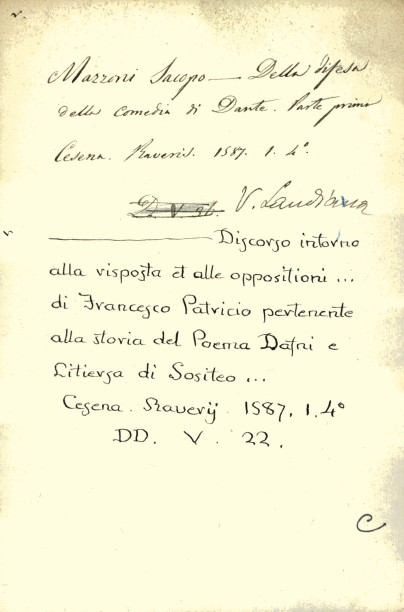 Mazzoni Jacopo — Della difesa
della comedia di Dante. Parte prima
Cesena. Raveris. 1587. 1. 4°.
D. V. 26. V. Landiana
Discorso intorno
alla risposta et alle oppositioni ...
di Francesco Patricio pertenente
alla storia del Poema Dafni e
Litiersa di Sositeo ...
Cesena. Raverij. 1587. 1. 4°
DD. V. 22.
C